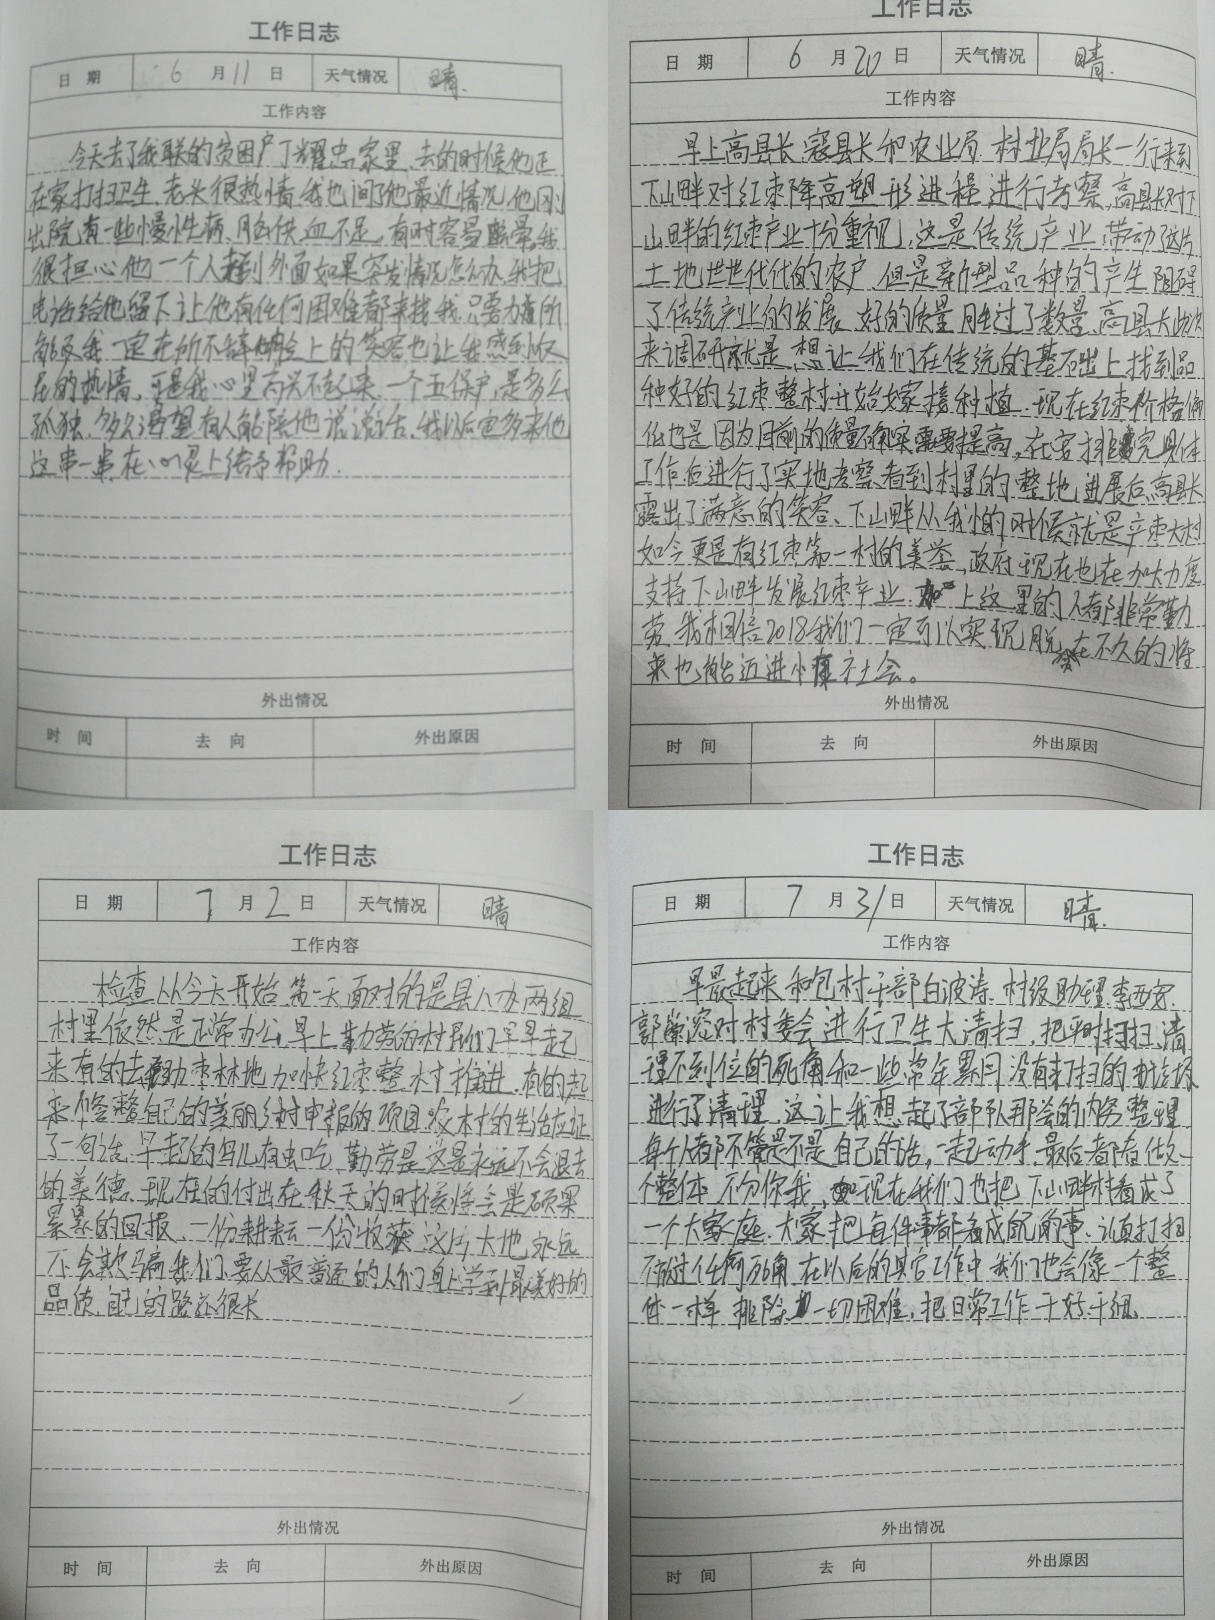 工作日志
日 期 6 月 11 日 天气情况 晴.
工作内容
今天去了我联的贫困户丁耀忠家里.去的时候他正
在家打扫卫生,老头很热情.我也问了他最近情况,他刚
出院,有一些慢性病、脑供血不足,有时容易眩晕,我
很担心他一个人在外面如果突发情况怎么办.我把
电话给他留下让他有任何困难都来找我.只要力所
能及我一定在所不辞.脸上的笑容也让我感到
的热情,可是我心里高兴不起来.一个五保户,是多么
孤独,多么渴望有人能陪他说说话,我以后也多来他
这串一串,在心灵上给予帮助.
外出情况
时 间 去 向 外出原因
工作日志
日 期 6 月 20 日 天气情况 晴.
工作内容
早上高县长 寇县长和农业局 林业局局长一行来到
下山畔对红枣降高塑形进程进行考察,高县长对下
山畔的红枣产业十分重视,这是传统产业,带动了这片
土地世世代代的农户 但是新型品种的产生阻碍
了传统产业的发展 好的质量胜过了数量.高县长此次
来调研就是想让我们在传统的基础上找到品
种好的红枣整村开始嫁接种植.现在红枣价格偏
低也是因为目前的质量确实需要提高,在安排完具体
工作后进行了实地考察,看到村里的整地进展后,高县长
露出了满意的笑容、下山畔从我小的时候就是产枣大村
如今更是有红枣第一村的美誉,政府现在也在加大力度
支持下山畔发展红枣产业.加上这里的人都非常勤
劳 我相信2018我们一定可以实现脱贫在不久的将
来也能迈进小康社会。
外出情况
时 间 去 向 外出原因
工作日志
日 期 7 月 2 日 天气情况 晴
工作内容
检查从今天开始 第一天面对的是县八办两组
村里依然是正常办公,早上勤劳的村民们早早起
来有的去枣林地加快红枣整村推进.有的起
来修整自己的美丽乡村申报的项目.农村的生活应证
了一句话.早起的鸟儿有虫吃 勤劳是这是永远不会退去
的美德.现在的付出在秋天的时候将会是硕果
累累的回报 一份耕耘一份收获 这片大地永远
不会欺骗我们.要从最普通的人们身上学到最美好的
品质,自己的路还很长
外出情况
时 间 去 向 外出原因
工作日志
日 期 7 月 31 日 天气情况 晴.
工作内容
早晨起来和包村干部白波涛.村级助理李西安.
郭对村委会进行卫生大清扫,把平时打扫清
理不到位的死角和一些常年累月没有打扫的垃圾
进行了清理.这让我想起了部队那会的内务整理
每个人都不管是不是自己的活,一起动手.最后都在做一
个整体 不分你我,现在我们也把下山畔村看成了
一个大家庭.大家把每件事都看成自己的事.认真打扫
不放过任何死角.在以后的其它工作中我们也会像一个整
体一样 排除一切困难.把日常工作干好干细.
外出情况
时 间 去 向 外出原因